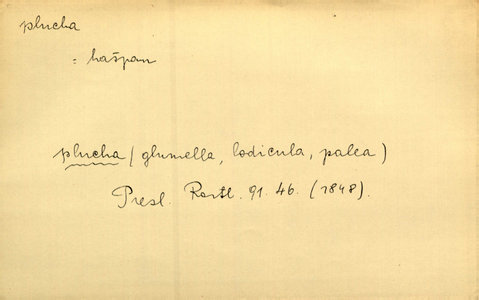 plucha
= hašpan
plucha (glumella, lodicula, palea)
Presl. Rostl. 91. 46. (1848).